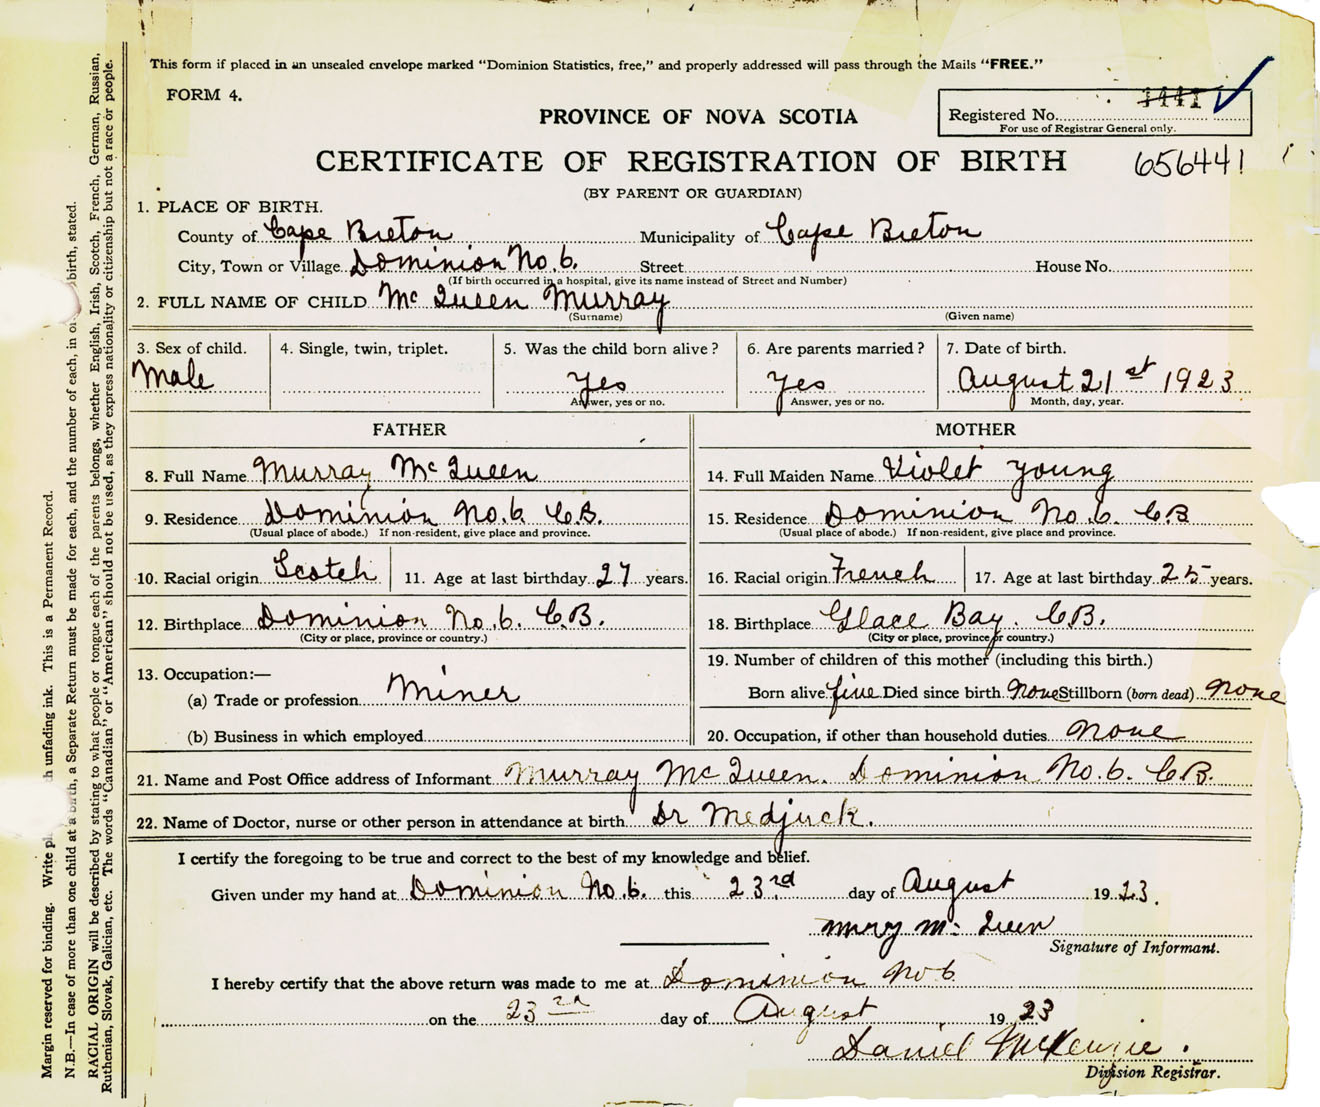 This form if placed in an unsealed envelope marked "Dominion Statistics, free," and properly addressed will pass through the Mails "FREE."
FORM 4.
PROVINCE OF NOVA SCOTIA
Registered No. 1441
For use of Registrar General only.
CERTIFICATE OF REGISTRATION OF BIRTH 656441
(BY PARENT OR GUARDIAN)
1. PLACE OF BIRTH.
County of Cape Breton Municipality of Cape Breton
City, Town or Village Dominion No. 6. Street House No.
(If birth occurred in a hospital, give its name instead of Street and Number)
2. FULL NAME OF CHILD Mc Queen Murray
(Surname) (Given name)
3. Sex of child. 4. Single, twin, triplet. 5. Was the child born alive? 6. Are parents married? 7. Date of birth.
Male Yes Yes August 21st 1923
Answer, yes or no. Answer, yes or no. Month, day, year.
FATHER MOTHER
8. Full Name Murray Mc Queen 14. Full Maiden Name Violet Young
9. Residence Dominion No. 6. C.B. 15. Residence Dominion No. 6. C.B
(Usual place of abode.) If non-resident, give place and province. (Usual place of abode.) If non-resident, give place and province.
10. Racial origin Scotch 11. Age at last birthday 27 years. 16. Racial origin French 17. Age at last birthday 25 years.
12. Birthplace Dominion No. 6. C.B. 18. Birthplace Glace Bay. C.B.
(City or place, province or country.) (City or place, province or country.)
13. Occupation:— 19. Number of children of this mother (including this birth.)
(a) Trade or profession Miner Born alive five Died since birth None Stillborn (born dead) None
(b) Business in which employed 20. Occupation, if other than household duties None
21. Name and Post Office address of Informant Murray McQueen. Dominion No. 6. C.B.
22. Name of Doctor, nurse or other person in attendance at birth Dr Medjuck.
I certify the foregoing to be true and correct to the best of my knowledge and belief.
Given under my hand at Dominion No. 6. this 23rd day of August 1923.
Mc Queen
Signature of Informant.
I hereby certify that the above return was made to me at Dominion No 6
on the 23rd day of August 1923
Daniel McKenzie.
Division Registrar.
Margin reserved for binding. Write unfading ink. This is a Permanent Record.
N.B.—In case of more than one child at a birth, a Separate Return must be made for each, and the number of each, in birth, stated.
RACIAL ORIGIN will be described by stating to what people or tongue each of the parents belongs, whether English, Irish, Scotch, French, German, Russian,
Ruthenian, Slovak, Galician, etc. The words "Canadian" or "American" should not be used, as they express nationality or citizenship but not a race or people.